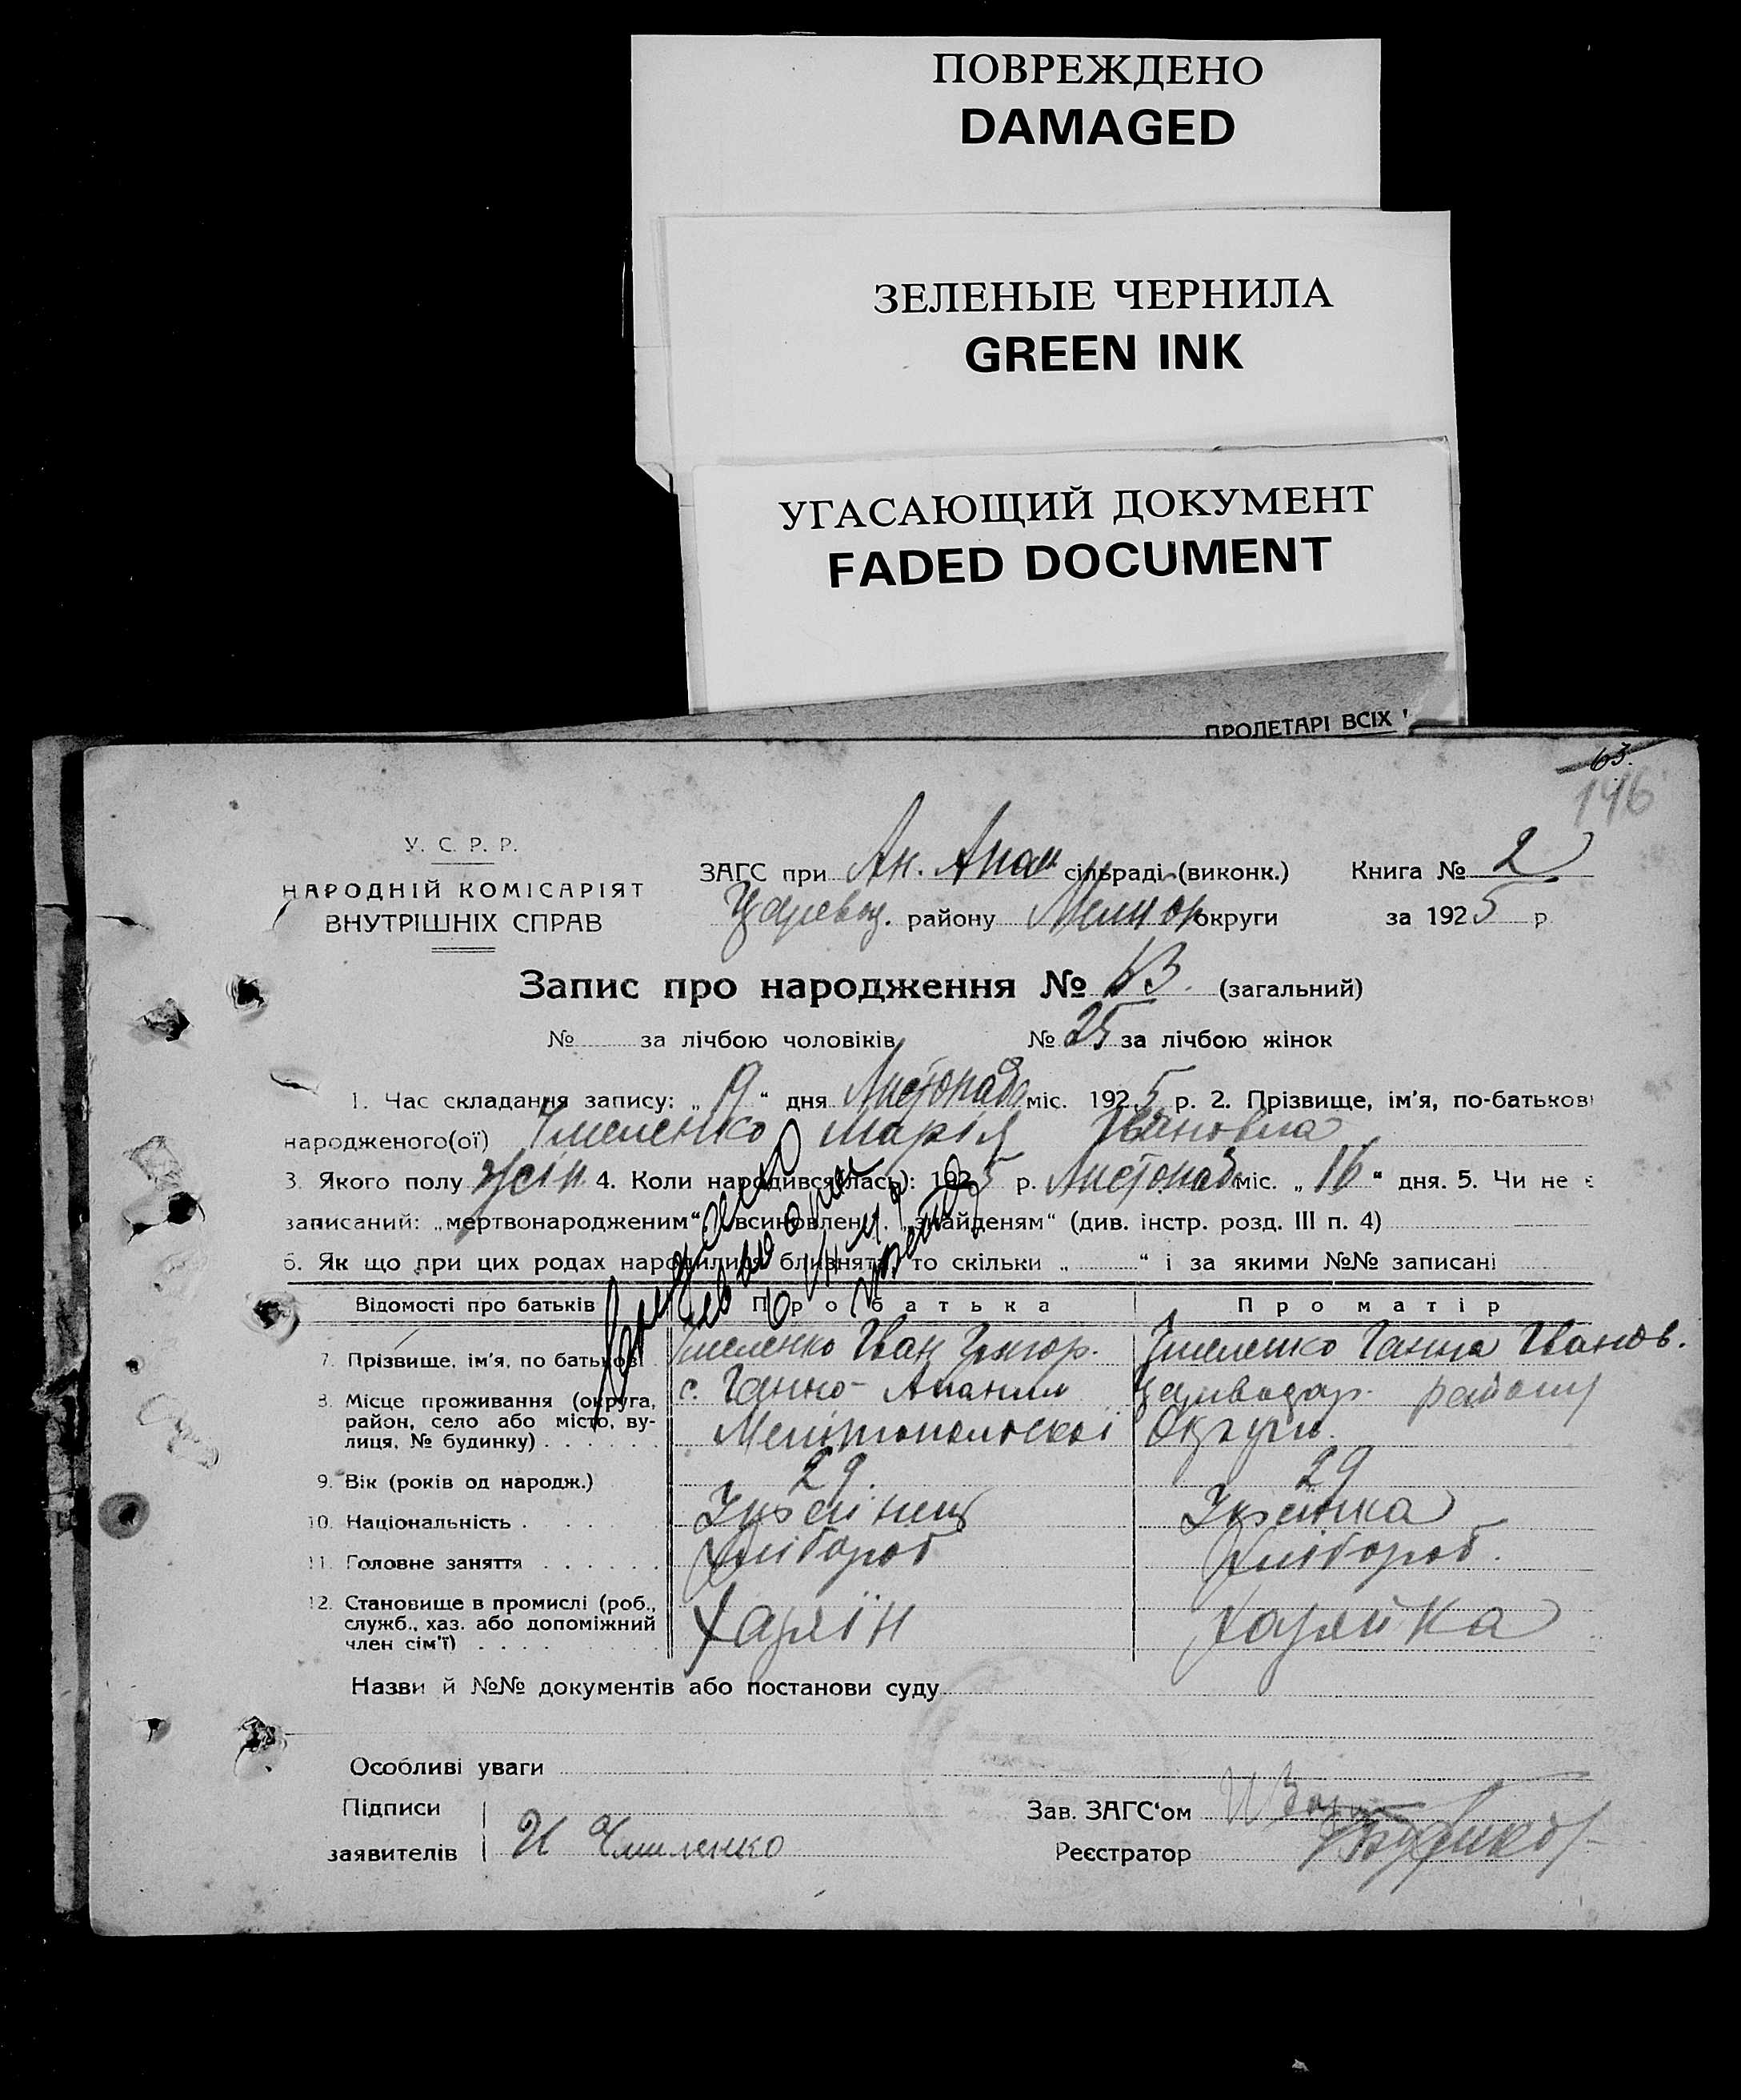 ПОВРЕЖДЕНО
DAMAGED
ЗЕЛЕНЫЕ ЧЕРНИЛА
GREEN INK
УГАСАЮЩИЙ ДОКУМЕНТ
FADED DOCUMENT
ПРОЛЕТАРІ ВСІХ
63.
146
У. С. Р. Р.
НАРОДНІЙ КОМІСАРІЯТ
ВНУТРІШНІХ СПРАВ
ЗАГС при Ан. Анан сільраді (виконк.) Книга № 2
району округи за 1925 р.
Запис про народження № 63. (загальний)
№ за лічбою чоловіків № 25 за лічбою жінок
1. Час складання запису: „ 19 “ дня Листопада міс. 1925 р. 2. Прізвище, ім'я, по-батькові
народженого(ої) Чмеленко Марія Івановна
3. Якого полу жін. 4. Коли народився(лась): 1925 р. Листопад міс. „ 16 “ дня. 5. Чи не є
записаний: „мертвонародженим“ „всиновлен „знайденям“ (див. інстр. розд. III п. 4)
6. Як що при цих родах народилися близнята, то скільки „ “ і за якими №№ записані
Відомості про батьків Про батька Про матір
7. Прізвище, ім'я, по батькові Чмеленко Іван Григор. Чмеленко Ганна Іванов.
8. Місце проживання (округа, с. Ганно- району
район, село або місто, ву-
лиця, № будинку) Мелітопольської Округи.
9. Вік (років од народж.) 29. 29
10. Національність Українец Українка
11. Головне заняття Хлібороб Хлібороб.
12. Становище в промислі (роб.,
служб., хаз. або допоміжний Хазяїн Хазяйка
член сім'ї)
Назви й №№ документів або постанови суду
Особливі уваги
Підписи Зав. ЗАГС'ом
заявителів И Чмиленко Реєстратор